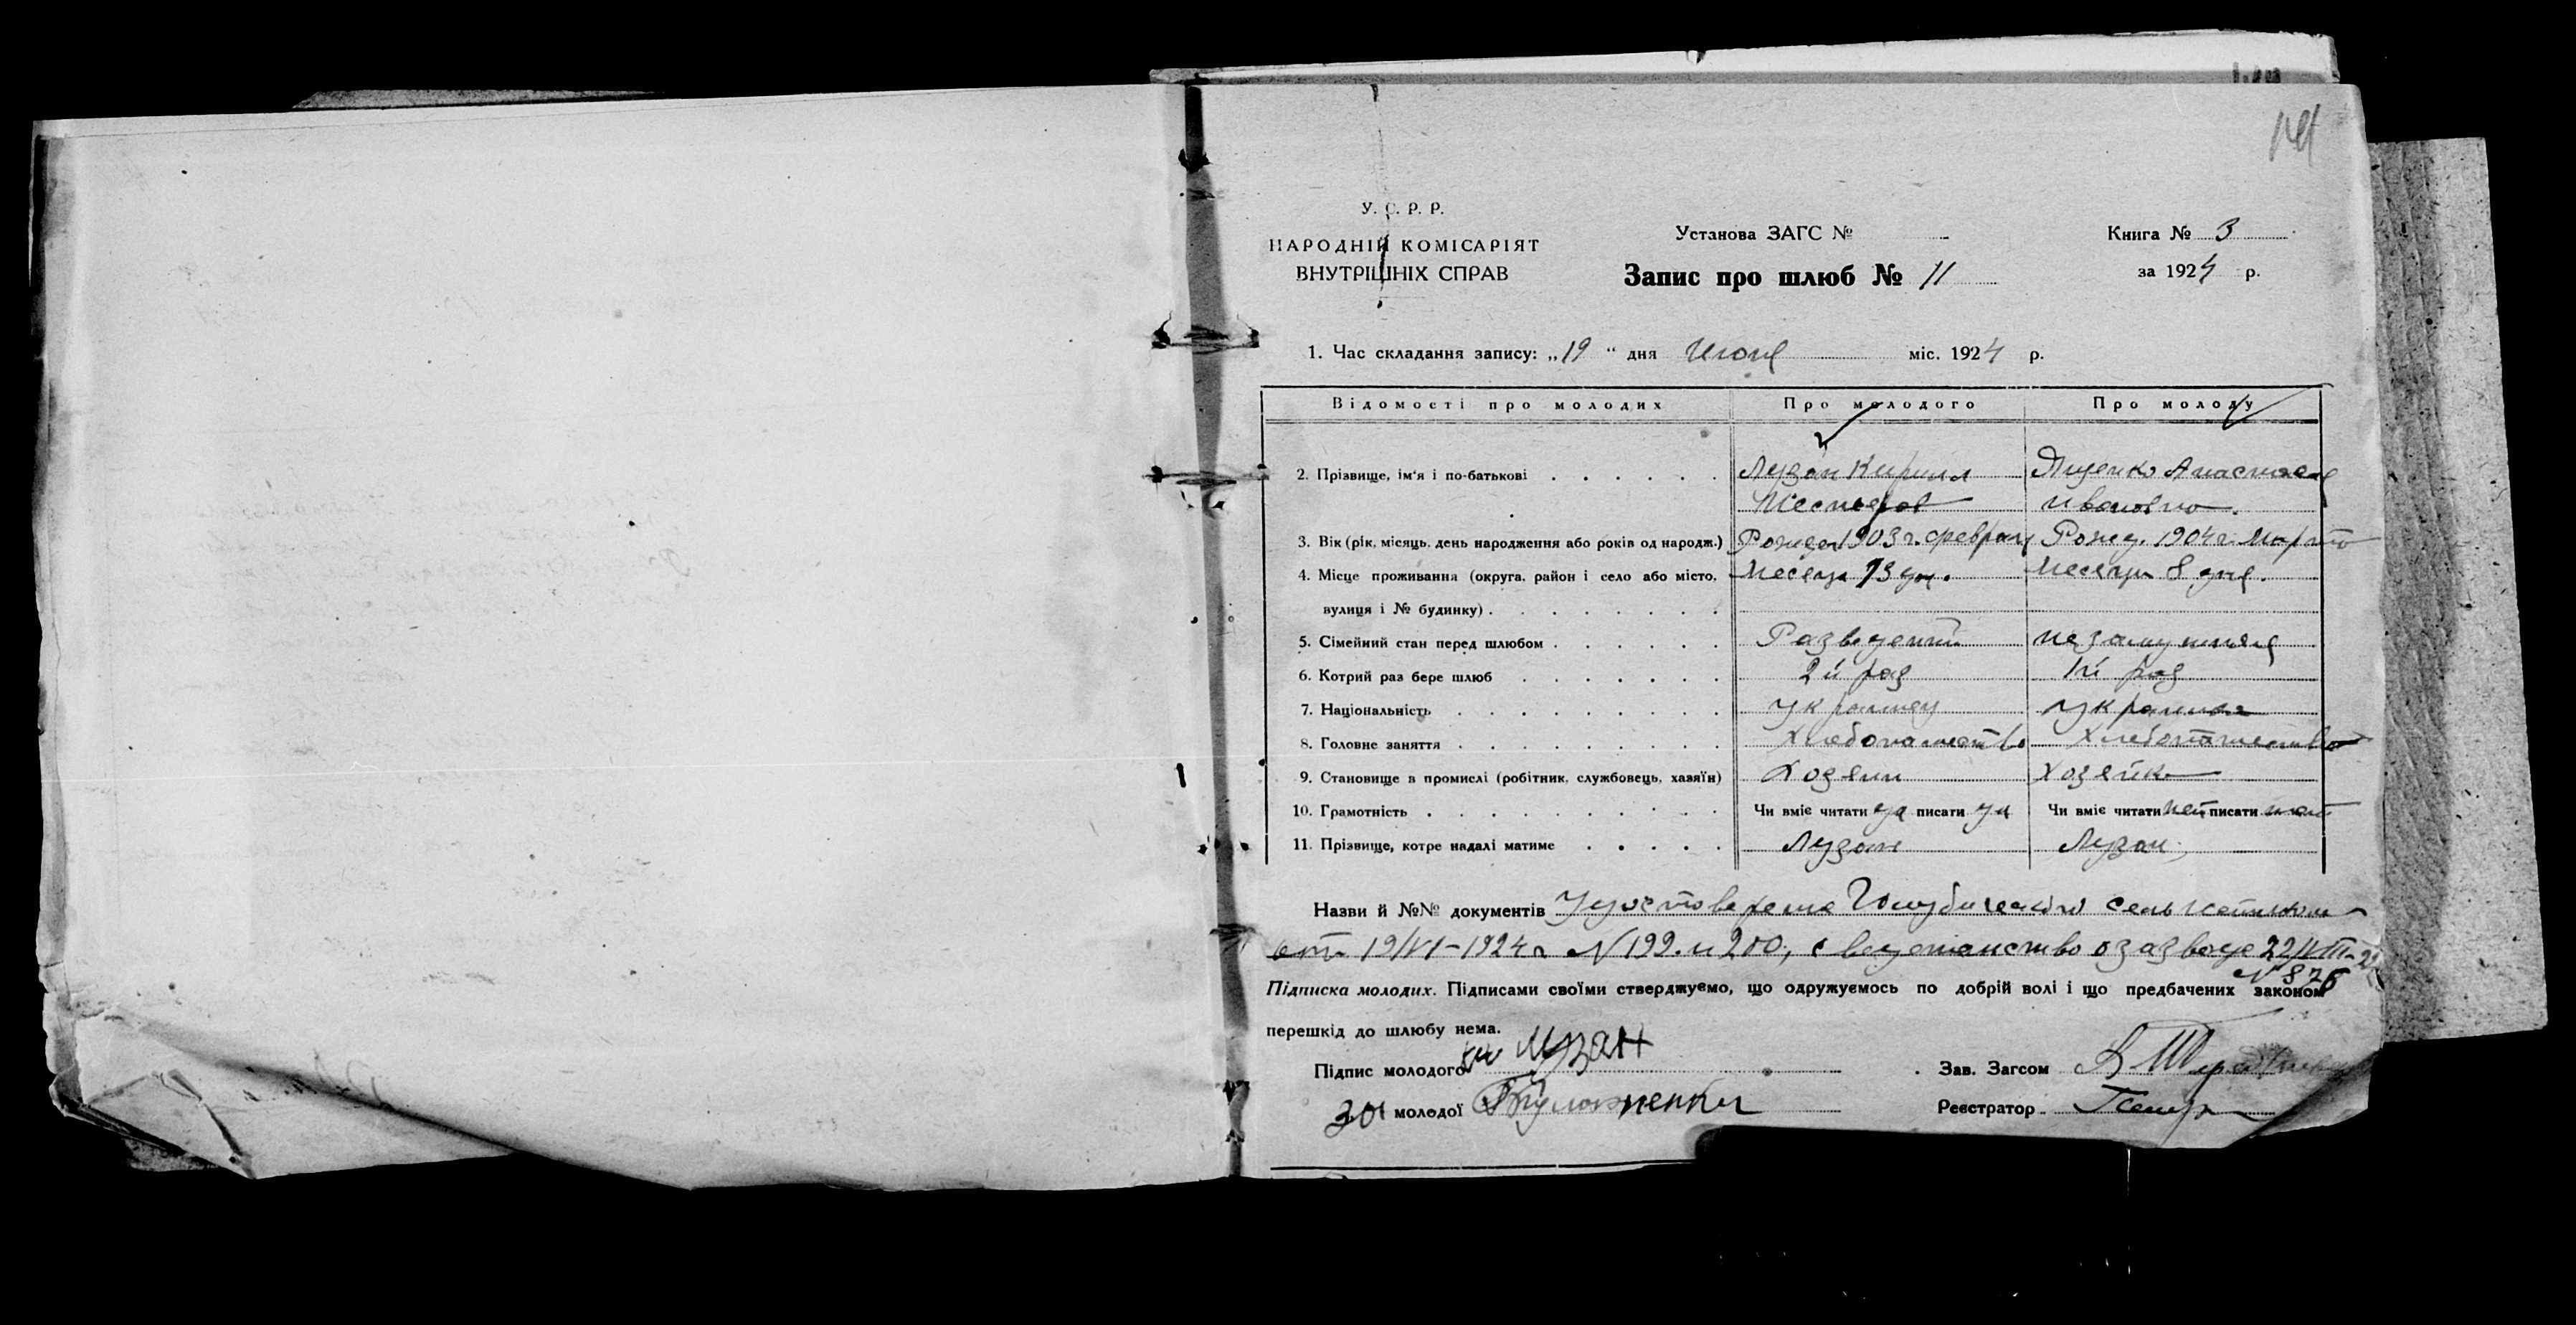 У. С. Р. Р.
НАРОДНІЙ КОМІСАРІЯТ
ВНУТРІШНІХ СПРАВ
Установа ЗАГС №
Запис про шлюб № 11
Книга № 3
за 1924 р.
1. Час складання запису: „19“ дня Июня міс. 1924 р.
Відомості про молодих Про молодого Про молоду
2. Прізвище, ім'я і по-батькові Лузан Кирилл Яценко Анастасия
Ивановна.
3. Вік (рік, місяць, день народження або років од народж.) Рожден 1903 г. февраля Рожд. 1904 г. Марта
4. Місце проживання (округа, район і село або місто, месяца 13 дн. месяца 8 дня.
вулиця і № будинку)
5. Сімейний стан перед шлюбом Разведенный незамужняя
6. Котрий раз бере шлюб 2й раз 1й раз
7. Національність Украинец Украинка
8. Головне заняття Хлебопашество Хлебопашество
9. Становище в промислі (робітник, службовець, хазяїн) Хозяин Хозяйка
10. Грамотність Чи вміє читати да писати да Чи вміє читати нет писати нет
11. Прізвище, котре надалі матиме Лузан Лузан
Назви й №№ документів Удостоверение
от 19/VI-1924 г N 199 и 200, свидетельство о разводе 22/VIII-
N 876
Підписка молодих. Підписами своїми стверджуємо, що одружуємось по добрій волі і що предбачених законом
перешкід до шлюбу нема.
Підпис молодого Лузан
за молодої
Зав. Загсом
Реєстратор